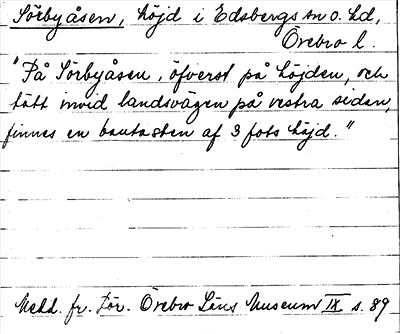 Sörbyåsen, höjd i Edsbergs sn o. hd,
Örebro l.
"På Sörbyåsen, öfverst på höjden, och
tätt invid landsvägen på vestra sidan,
finnes en bautasten af 3 fots höjd."
Medd. fr. För. Örebro Läns Museum IX s. 89